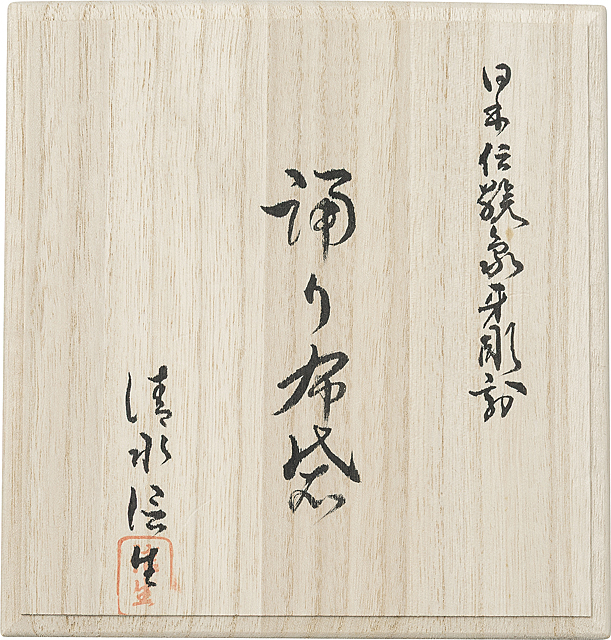 日本伝統象牙彫刻
踊り布袋
清水信生